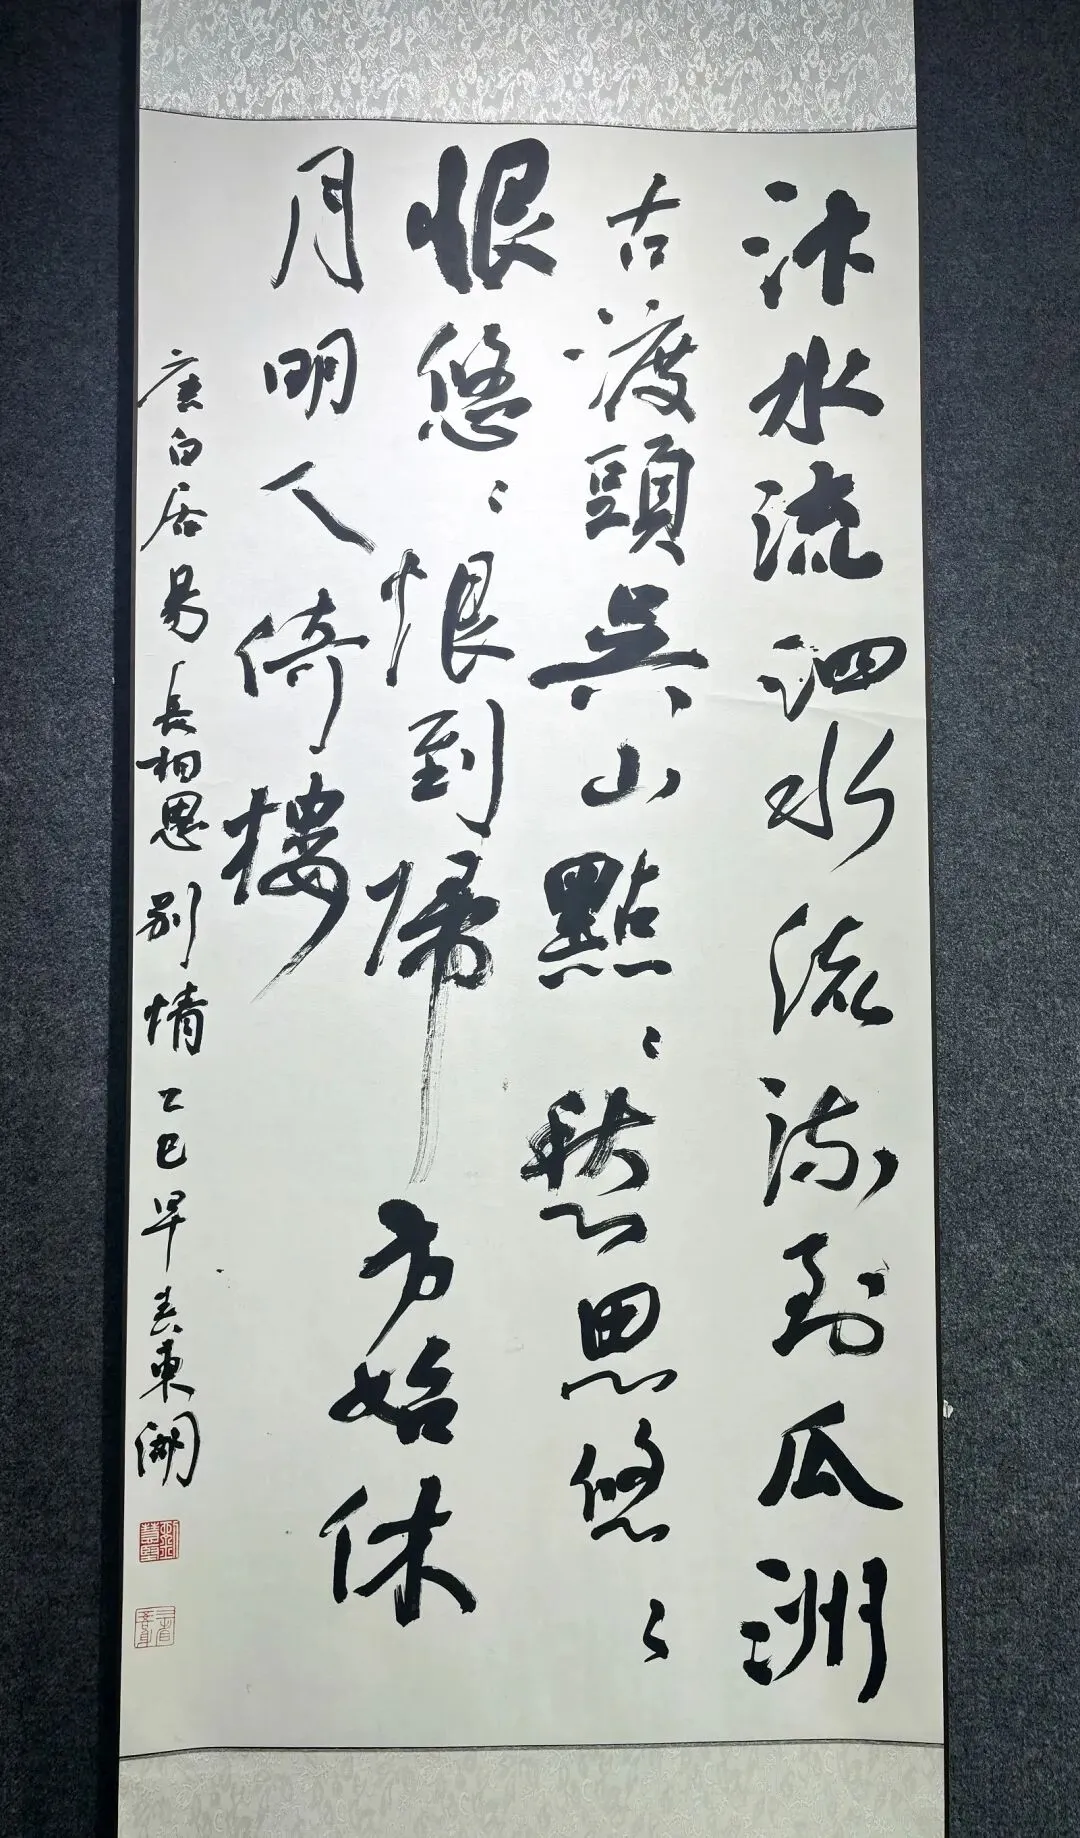 汴水流泗水流流到瓜洲
古渡頭吳山點〻愁思悠〻
恨悠〻恨到歸方始休
月明人倚樓
唐白居易長相思別情乙巳早春東湖